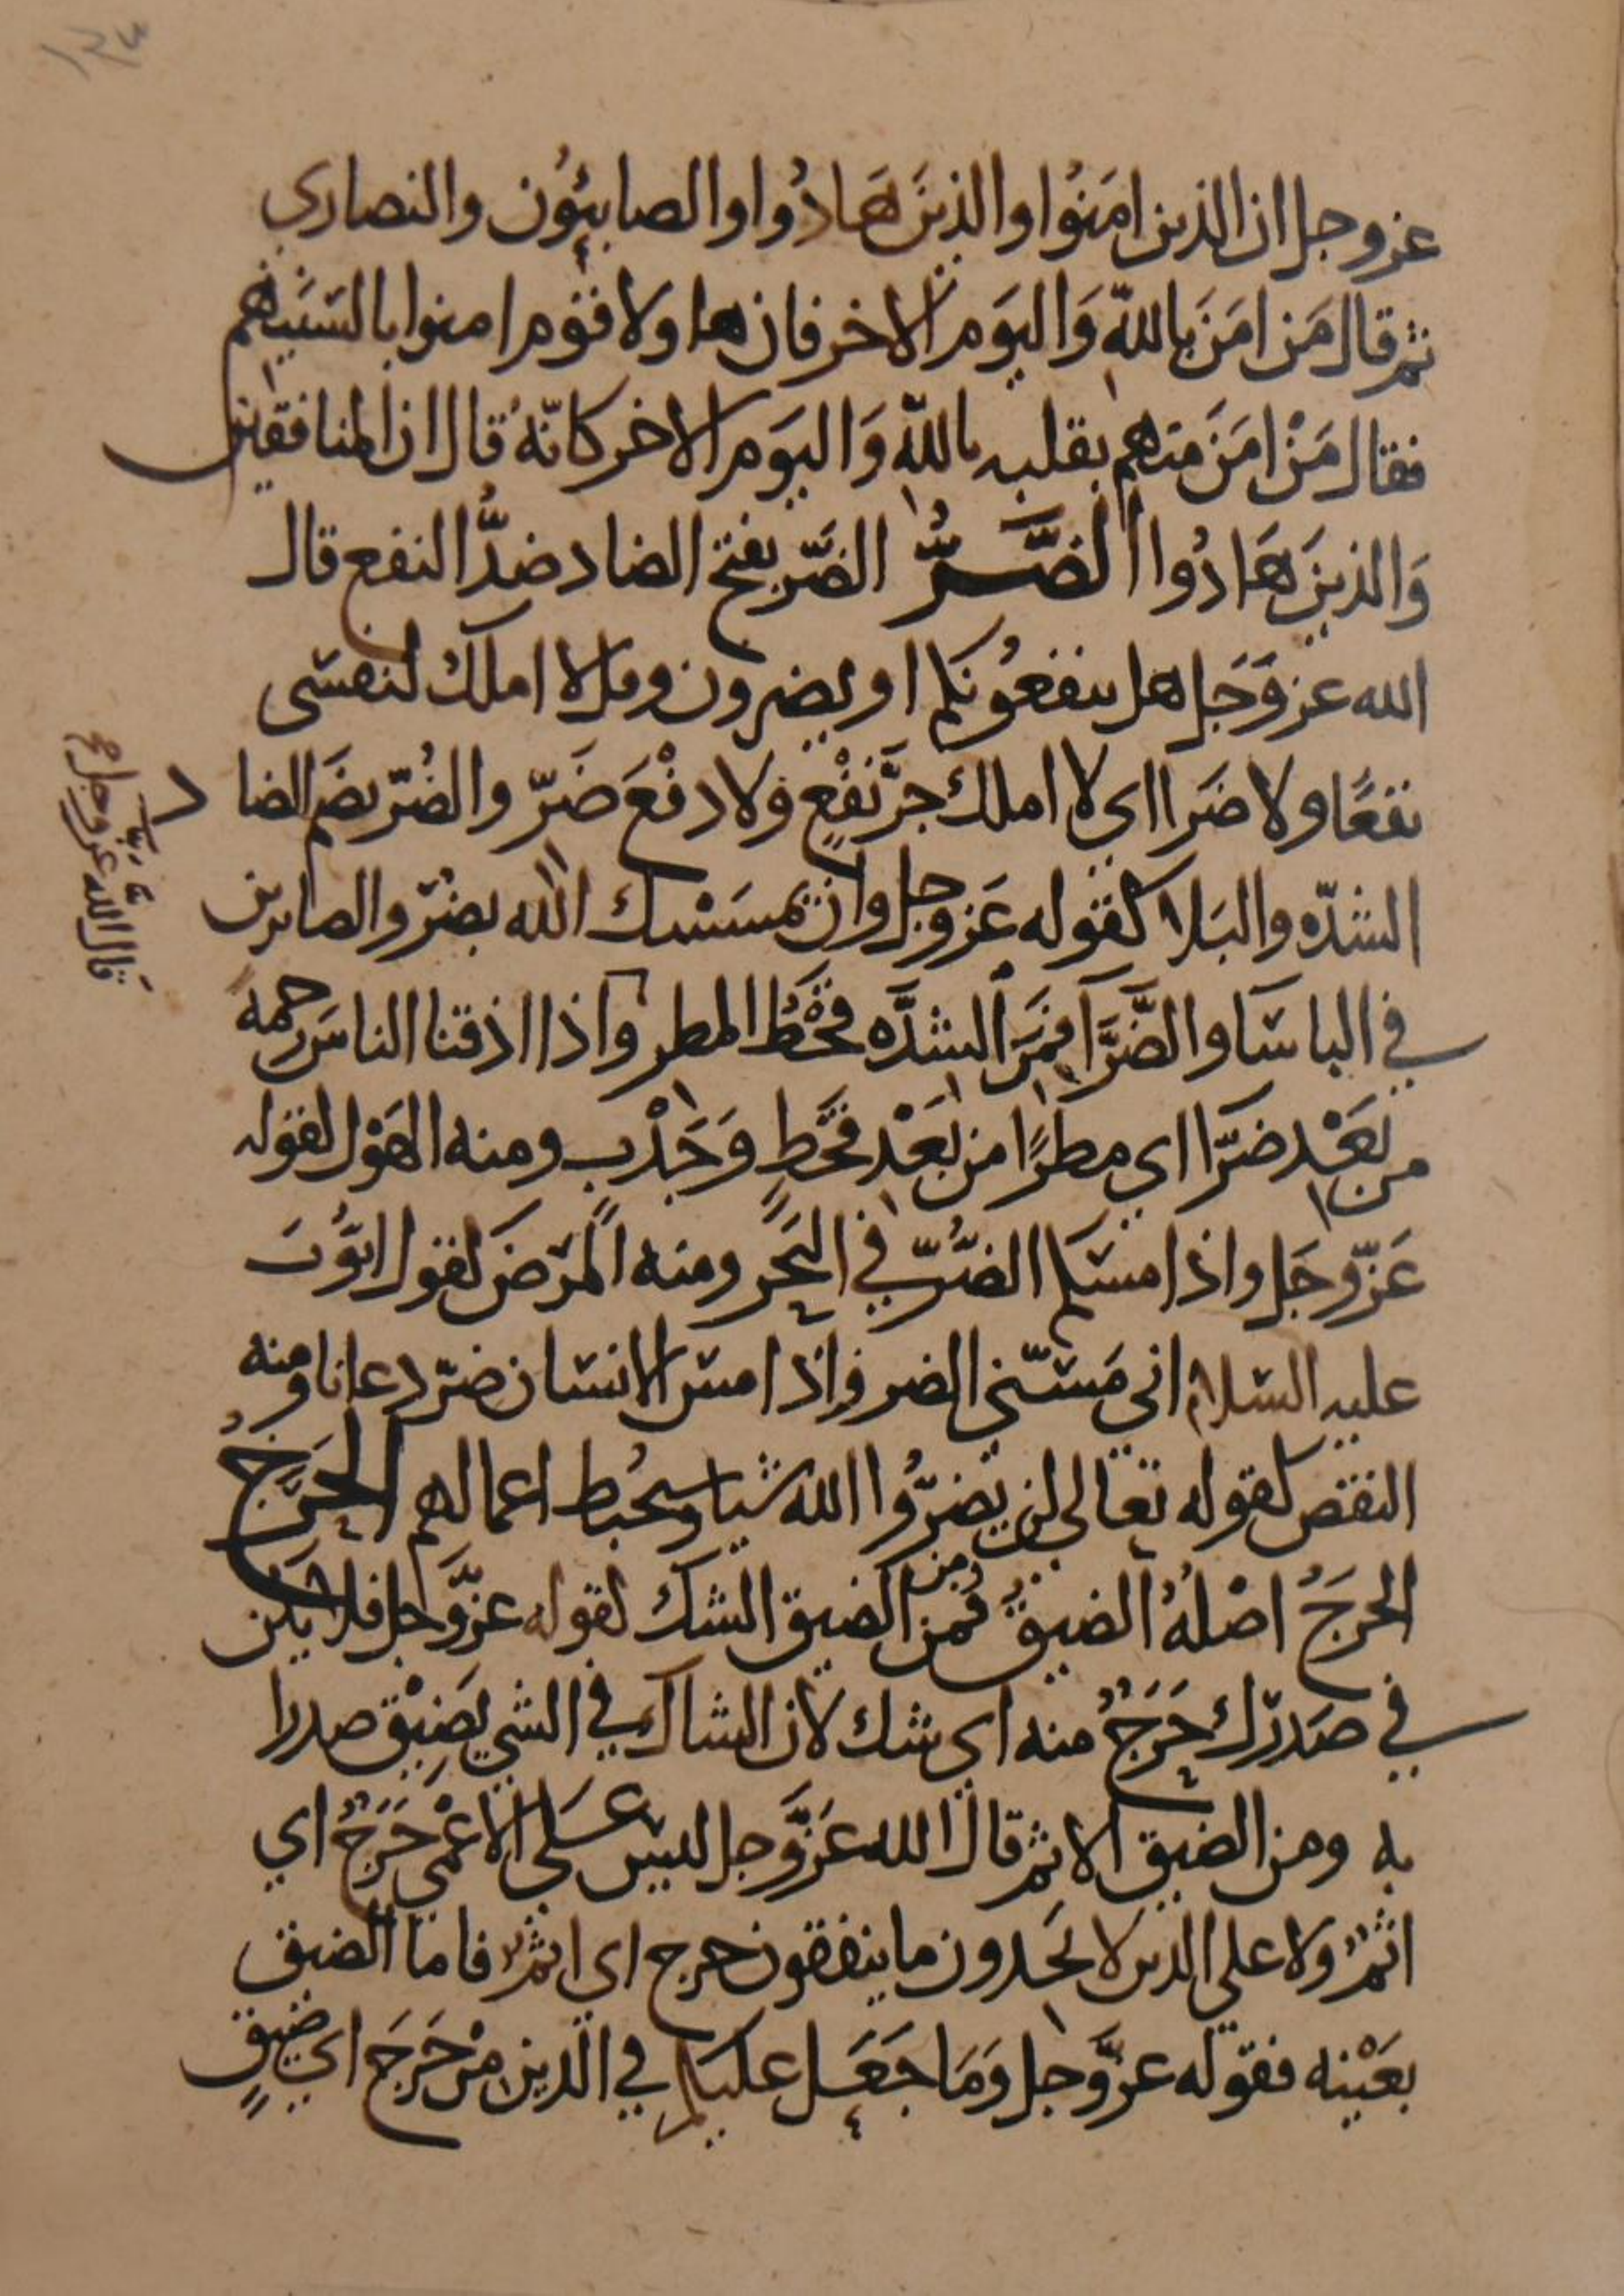 ١٢٣
عز وجل ان الذين امَنوُا والذينَ هَادُوا والصابئوُن والنصارى
ثم قال مَن امَنَ بالله وَاليوَم الاخر فان هاولا قوم امنوا بالسَنتهم
فقال مَنْ امَنَ منهم بقلبه بالله وَاليوَم الاخر كانّهُ قال ان المنافقين
وَالذينَ هَادُوا الضَّرُّ الضّر بفتح الضاد ضدُّ النفع قال
الله عز وَجَل هل ينفعُونكم او يضرون وقل لا املك لنفسى
نفعًا ولا ضَرا اى لا املك جرَّ نَفْعٍ وَلا دفْعَ ضَرّ والضُرّ بضَم الضاد
الشدّه والبَلا كقوله عَز وجل وان يمسَسْك الله بضُرّ والصابرين
في الباسَا والضَّرَّا فمَن الشدَّه قحْطُ المطر واذا اذقنا الناسَ رحمه
من بَعْد ضرّا اى مطرًا من بَعْد قحْطٍ وَجَدْبٍ ومنه الهَوْل لقوله
عَزّ وجَل واذا مسَّكم الضُّرّ في البَحَر ومنه المرَضَ لقول ايوُّبَ
عليه السلام اني مَسَّني الضر وَاِذا مس الانسان ضرّ دعانا ومنه
النقص لقوله تعَالى لن يَضرُّوا الله شيا وسيحُبط اعمالهم الحَرَجُ
الحرَجُ اصْلهُ الضيقُ فمن الضيق الشك لقوله عزَّ وجل فلا يكن
في صَدرك حَرَجُ منه اى شك لان الشاك في الشى يَضِيْق صدرا
به ومن الضيق الاثم قال الله عَزَّ وجل ليس عَلى الاعْمَى حَرَجُ اى
اثمُ ولا على الذين لا يَجدون ما ينفقون حرج اى اثم فاما الضيق
بعَيْنه فقوله عزَّ وجل وَمَا جَعَل عليكم في الدين مْن حَرَجَ اى ضيقٍ
قال الله عز وجل